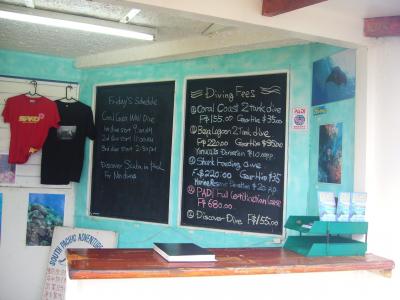 Friday's Schedule
Coral Coast Will Dive
1st dive start 9:00 AM
2nd dive start
3rd dive start 2:30 pm
Discover Scuba in Pool
For
Diving Fees
① Coral Coast 2 Tank dive
F$155.00 Gear Hire $35.00
② Beqa Lagoon 2 Tank dive
F$220.00 Gear Hire $35.00
Donation $10
③ Shark Feeding dive
F$220.00 Gear Hire $35
Marine Reserve Donation $20
④ PADI Full Certification Course
F$680.00
⑤ Discover Dive F$155.00
PADI
SOUTH PACIFIC ADVENTURE